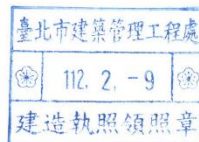 臺北市建築管理工程處
112. 2. -9
建造執照領照章